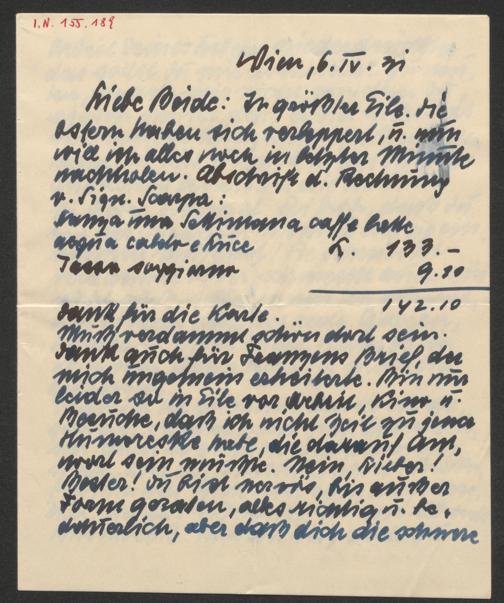 I.N. 155.189
Wien, 6. IV. 31
Liebe Beide: In größter Eile. Die
Ostern haben sich verleppert, u. nun
will ich alles noch in letzter Minute
nachholen. Abschrift d. Rechnung
v. Sign. Scarpa:
una Settimana caffe latte
acqua calda e luce L. 133.–
Tassa soggiorno 9.10
142.10
Dank für die Karte.
Muß verdammt schön dort sein.
Dank auch für Franzens Brief, der
mich ungemein erheiterte. Bin nur
leider so in Eile vor Arbeit, Kino u.
Besuche, daß ich nicht Zeit zu jener
Humoreske habe, die darauf Ant-
wort sein müßte. Nein, Lieber!
Bester! Du bist nervös, bis außer
Form geraten, alles richtig u. be-
dauerlich, aber daß dich die schwere